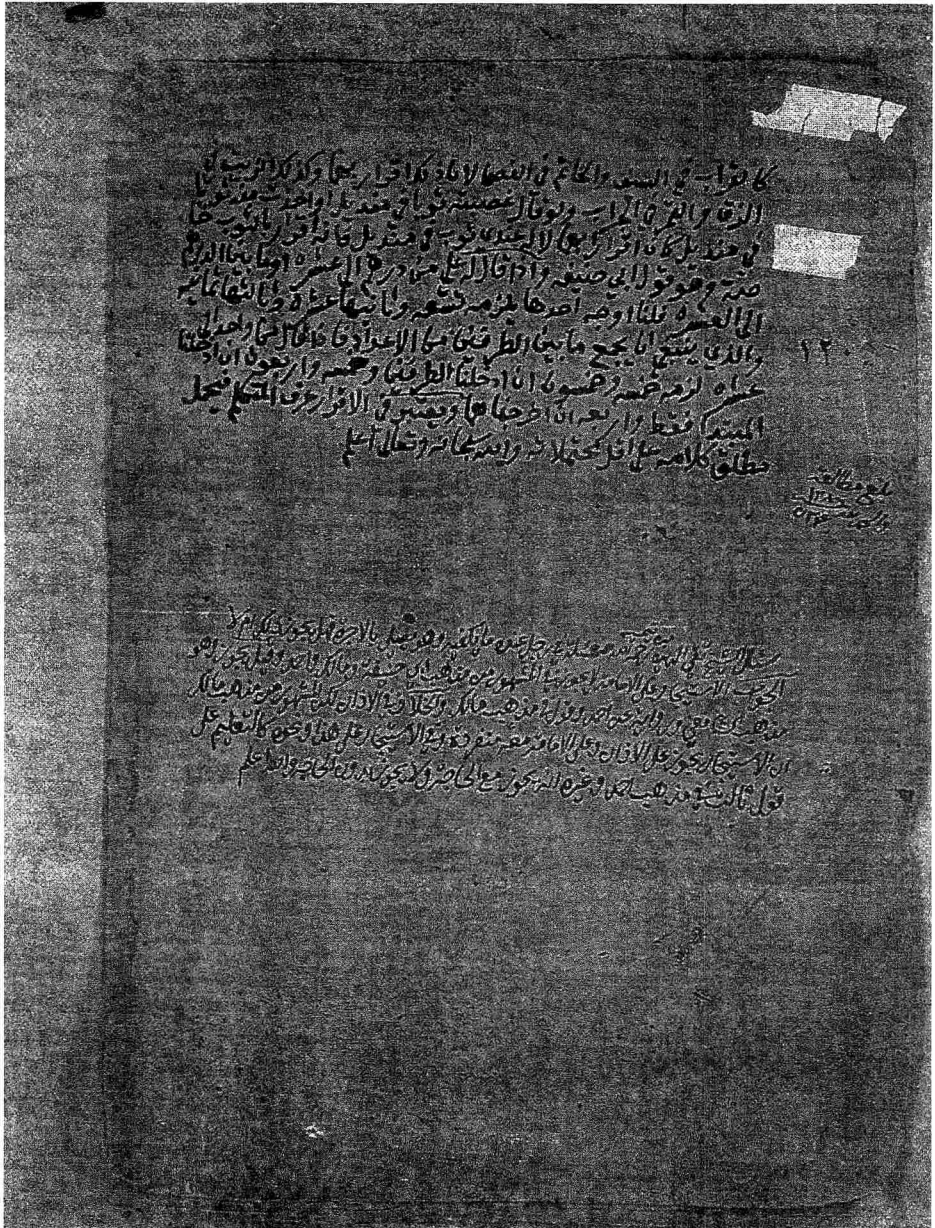 كالقراب في السيف والخاتم في الفص الا ان ذلك اقرار بهما وكذلك الزيت في
الزق والتمرة في الجراب ولو قال غصبته ثوبا في منديل او اخذت منه ثوبا
في منديل كان اقرارا بهما لا له عندي ثوب في منديل فانه اقرار بالثوب خا
صة وهو قول ابي حنيفة واذا قال له علي من درهم الى عشرة او ما بين الدرهم
الى العشرة قلنا اوجه احدها يلزمه تسعة وثانيها عشرة وثالثها ثمانية
والذي ينبغي ان يجمع ما بين الطرفين من الاعداد فاذا قال من واحد الى
عشرة لزمه خمسة وخمسون ان ادخلنا الطرفين وخمسة واربعون ان ادخلنا
المبتدا فقط واربعة ان اخرجناهما ويعتبر في الاقرار عرف المتكلم فيحمل
مطلق كلامه على اقل محتملاته والله سبحانه وتعالى اعلم
١٢٠
بلغ مقابلة
سئل الشيخ تقي الدين رحمه الله عن رجل عنده ما يكفيه وهو يصلي بالاجرة فهل يجوز ذلك ام لا
الجواب الاستيجار على الامامة لا يجوز في المشهور من مذهب ابي حنيفة ومالك واحمد وقيل يجوز وهو
مذهب الشافعي ورواية عن احمد وقول في مذهب مالك والخلاف في الاذان لكن المشهور من مذهب مالك
ان الاستيجار يجوز على الاذان وعلى الامامة معه منفردة وفي الاستيجار على هذا ونحوه كالتعليم على
قول ثالث في مذهب احمد وغيره انه يجوز مع الحاجة ولا يجوز بدون الحاجة والله اعلم